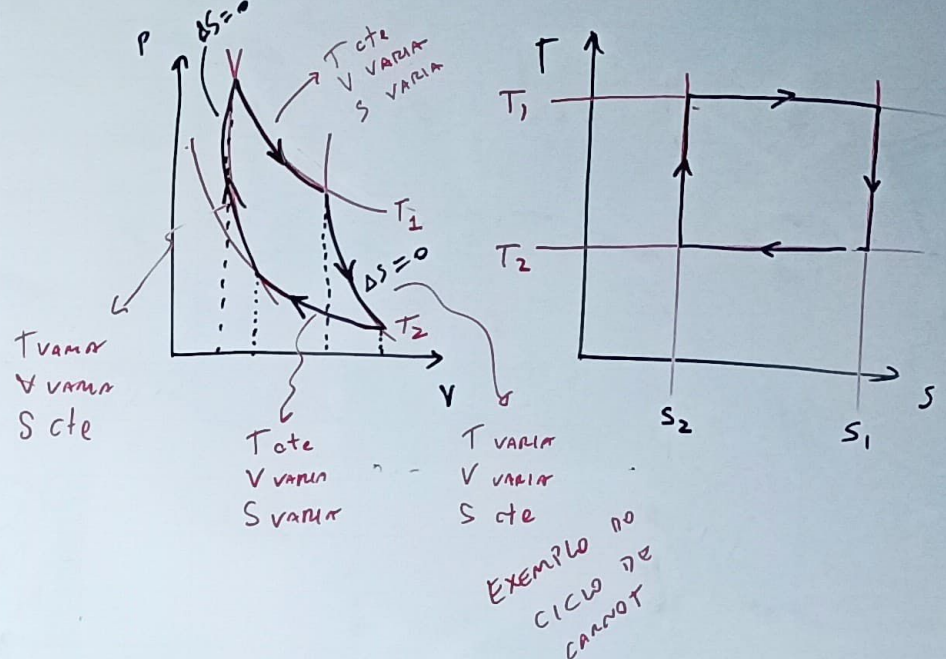 P
ΔS=0
T cte
V VARIA
S VARIA
T₁
ΔS=0
T₂
V
T VARIA
V VARIA
S cte
T cte
V VARIA
S VARIA
T VARIA
V VARIA
S cte
EXEMPLO DO
CICLO DE
CARNOT
T
T₁
T₂
S₂
S₁
S